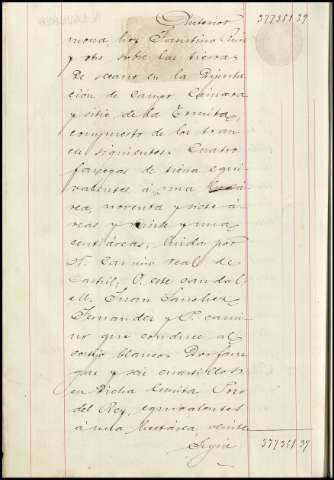 Anterior 377351 39
mona, hoy Faustino Ruiz
y otro sobre las tierras
de secano en la Diputa
ción de Campo Cámara
y sitio de la Ermita,
compuesto de los tran
ces siguientes: Cuatro
fanegas de tierra equi
valentes á una hectá
rea, noventa y siete á
reas y veinte y una
centiáreas; linda por
N. camino real de
Castril, O. este
Juan Sanchez
Fernandez y P. cami
no que conduce al
cortijo blanco: Dos fane
gas y seis cuartillos
en dicha Ermita Pozo
del Rey, equivalentes
á una hectárea veinte
Sigue 377351 39